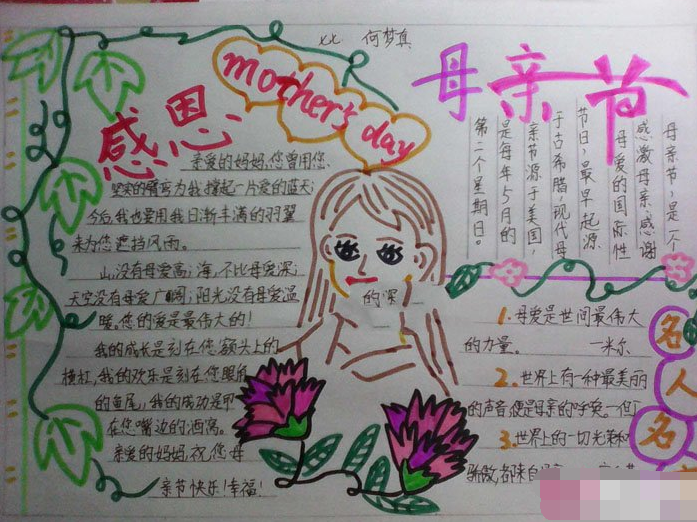 七七 何梦真
mother's day
感恩
母亲节
亲爱的妈妈,您曾用您
坚实的臂弯为我撑起一片爱的蓝天;
今后,我也要用我日渐丰满的羽翼
来为您遮挡风雨。
山,没有母爱高;海,不比母爱深;
天空没有母爱广阔;阳光没有母爱温
暖,您的爱是最伟大的!
我的成长是刻在您额头上的
横杠,我的欢乐是刻在您眼角
的鱼尾,我的成功是
在您嘴边的酒窝。
亲爱的妈妈,祝您母
亲节快乐!幸福!
的深
母亲节,是一个
感激母亲,感谢
母爱的国际性
节日,最早起源
于古希腊,现代母
亲节源于美国,
是每年5月的
第二个星期日。
1.母爱是世间最伟大
的力量。 一米尔
2.世界上有一种最美丽
的声音,便是母亲的呼唤。一但丁
3.世界上的一切光荣和
骄傲,都来自
名人名